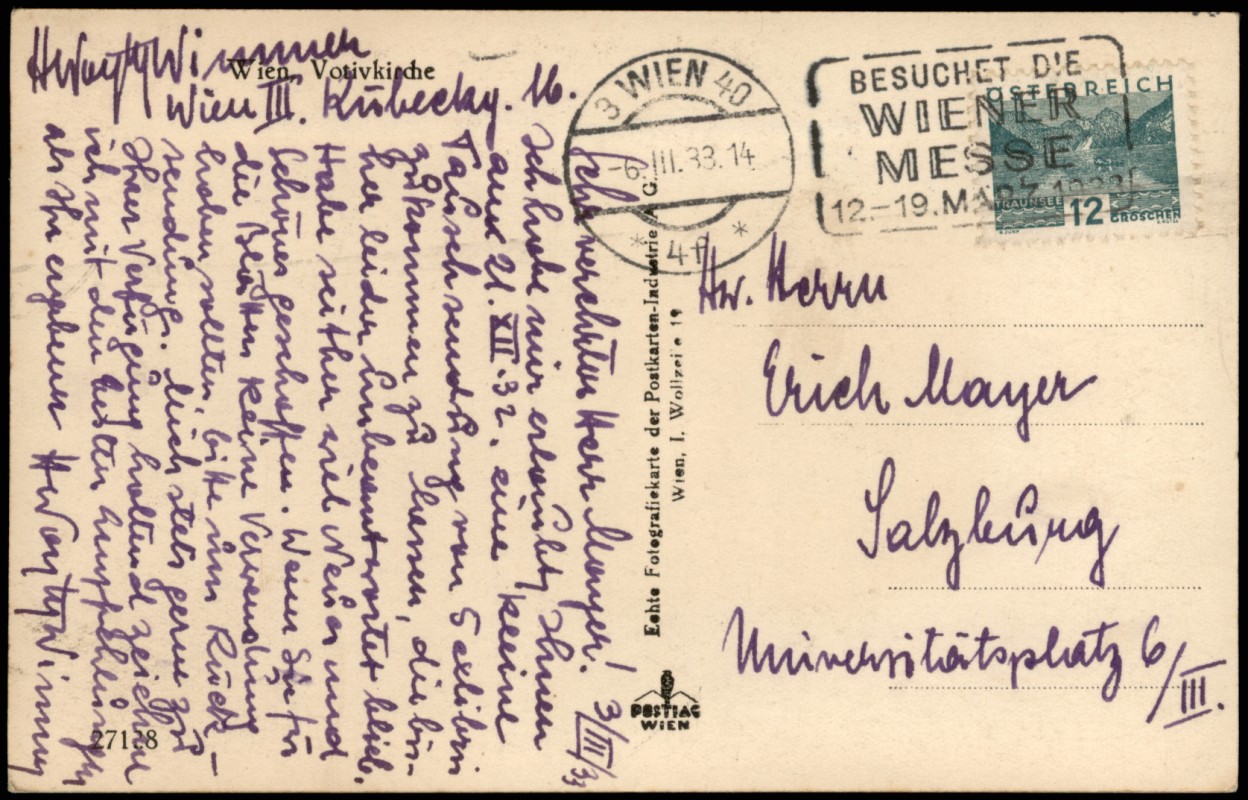 Wimmer
Wien, Votivkirche
Wien III. Kübeckg. 16.
3/III/33
Sehr verehrter Herr Mayer!
Ich habe mir erlaubt, Ihnen
am 21.XII.32. eine kleine
Tauschsendung von 5 exlibris
zukommen zu lassen, die bis-
her leider unbeantwortet blieb.
Habe seither viel Neues und
Schönes geschaffen. Wenn Sie für
die Blätter keine Verwendung
haben sollten, bitte um Rück-
sendung. Mich stets gerne zur
Ihrer Verfügung haltend zeichne
ich mit den besten Empfehlungen
als Ihr ergebener
Wimmer
27128
Echte Fotografiekarte der Postkarten-Industrie A. G.
Wien, I. Wollzeile 19
POSTIAG
WIEN
3 WIEN 40
-6.III.33.14
* 4f *
BESUCHET DIE
WIENER
MESSE
12.-19. MÄRZ 1933
ÖSTERREICH
TRAUNSEE 12 GROSCHEN
Hw. Herrn
Erich Mayer
Salzburg
Universitätsplatz 6/III.